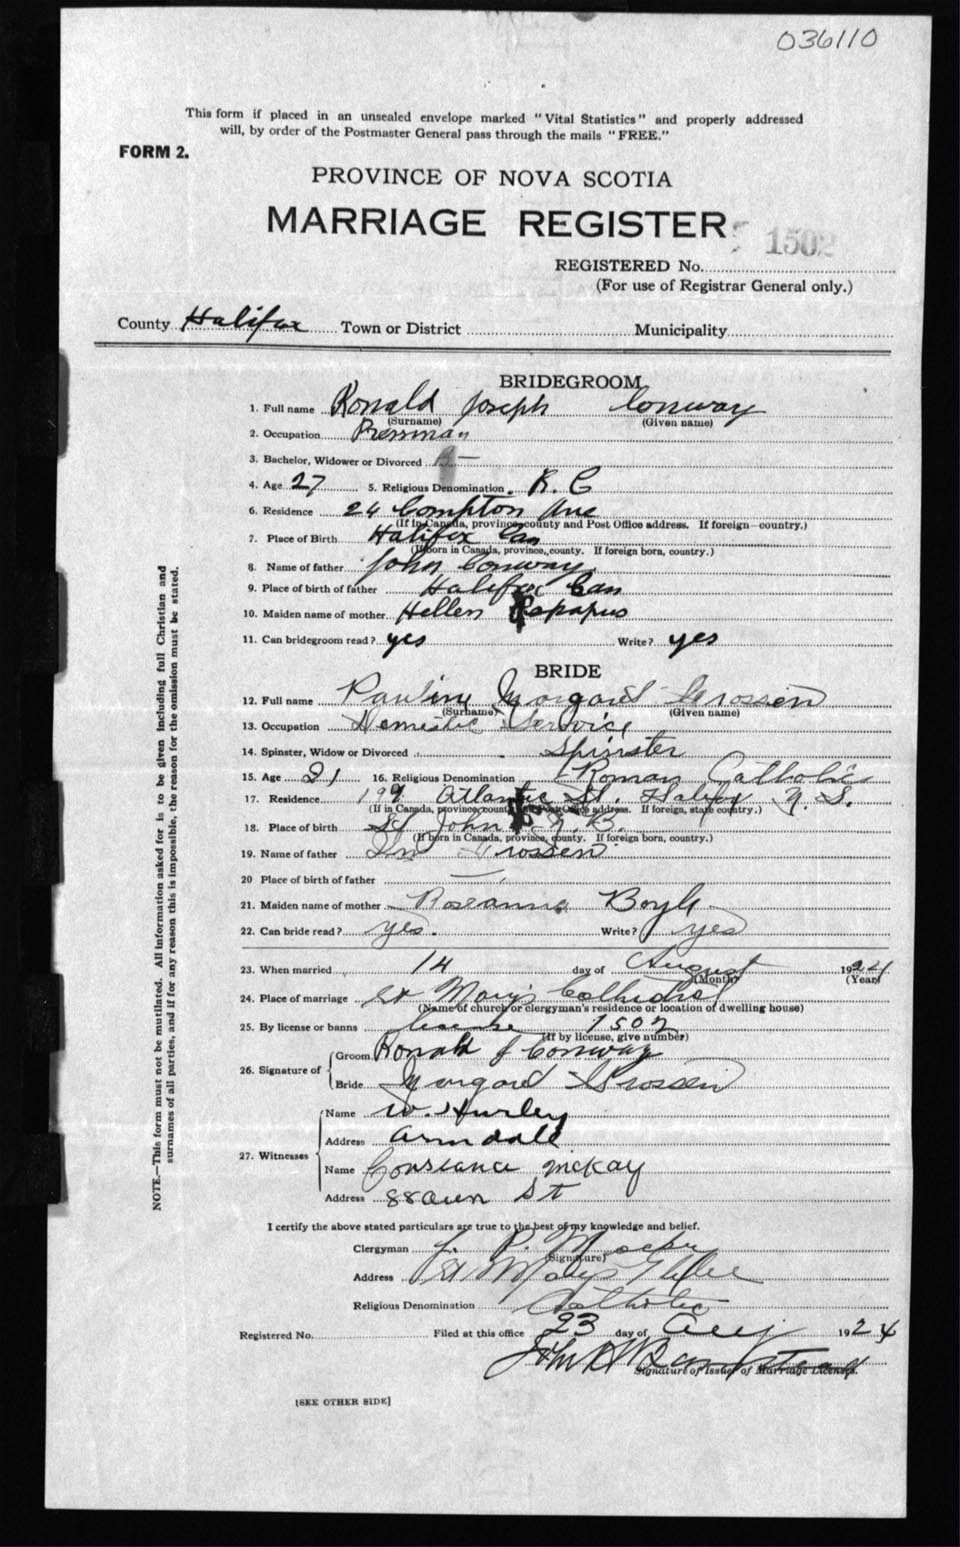 036110
This form if placed in an unsealed envelope marked "Vital Statistics" and properly addressed
will, by order of the Postmaster General pass through the mails "FREE."
FORM 2.
PROVINCE OF NOVA SCOTIA
MARRIAGE REGISTER
1502
REGISTERED No.
(For use of Registrar General only.)
County Halifax Town or District Municipality
BRIDEGROOM
1. Full name Ronald Joseph Conway
(Surname) (Given name)
2. Occupation Pressman
3. Bachelor, Widower or Divorced B—
4. Age 27 5. Religious Denomination R. C
6. Residence 24 Compton Ave
(If in Canada, province, county and Post Office address. If foreign—country.)
7. Place of Birth Halifax Can
(If born in Canada, province, county. If foreign born, country.)
8. Name of father John Conway
9. Place of birth of father Halifax Can
10. Maiden name of mother Hellen
11. Can bridegroom read? yes Write? yes
BRIDE
12. Full name Pauline Margaret Grossen
(Surname) (Given name)
13. Occupation Domestic Service
14. Spinster, Widow or Divorced Spinster
15. Age 21 16. Religious Denomination Roman Catholic
17. Residence 199 Atlantic St. Halifax N. S.
(If in Canada, province, county and Post Office address. If foreign, state country.)
18. Place of birth St John N. B.
(If born in Canada, province, county. If foreign born, country.)
19. Name of father Grossen
20 Place of birth of father —
21. Maiden name of mother Roseanna Boyle
22. Can bride read? yes. Write? yes
23. When married 14 day of August 1924
(Month) (Year)
24. Place of marriage St Mary's Cathedral
(Name of church or clergyman's residence or location of dwelling house)
25. By license or banns license 1502
(If by license, give number)
26. Signature of
Groom Ronald J Conway
Bride Margaret Grossen
27. Witnesses
Name W. Hurley
Address Armdale
Name Constance McKay
Address St
I certify the above stated particulars are true to the best of my knowledge and belief.
Clergyman P.
(Signature)
Address St Marys Glebe
Religious Denomination Catholic
Registered No. Filed at this office 23 day of Aug 1924
John H
Signature of Issuer of Marriage Licenses.
[SEE OTHER SIDE]
NOTE.—This form must not be mutilated. All information asked for is to be given including full Christian and
surnames of all parties, and if for any reason this is impossible, the reason for the omission must be stated.